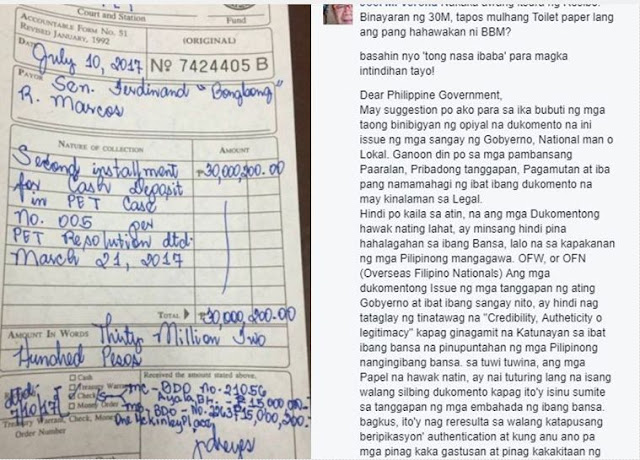 Court and Station
Fund
ACCOUNTABLE FORM NO. 51
REVISED JANUARY, 1992
(ORIGINAL)
DATE
July 10, 2017
Nº 7424405 B
PAYOR
Sen. Ferdinand "Bongbong"
R. Marcos
NATURE OF COLLECTION
AMOUNT
Second installment
₱30,000,200.00
for Cash Deposit
in PET Case
No. 005 per
PET Resolution dtd.
March 21, 2017
TOTAL ▶ ₱30,000,200.00
AMOUNT IN WORDS Thirty Million Two
Hundred Pesos
Received the amount stated above.
Cash
Treasury Warrant
Check
Money Order
mc-BDO No-21056
Ayala, ₱15,000,000.-
Treasury Warrant, Check, Money
Order Number
Binayaran ng 30M, tapos mulhang Toilet paper lang
ang pang hahawakan ni BBM?
basahin nyo 'tong nasa ibaba' para magka
intindihan tayo!
Dear Philippine Government,
May suggestion po ako para sa ika bubuti ng mga
taong binibigyan ng opiyal na dukomento na ini
issue ng mga sangay ng Gobyerno, National man o
Lokal. Ganoon din po sa mga pambansang
Paaralan, Pribadong tanggapan, Pagamutan at iba
pang namamahagi ng ibat ibang dukomento na
may kinalaman sa Legal.
Hindi po kaila sa atin, na ang mga Dukomentong
hawak nating lahat, ay minsang hindi pina
hahalagahan sa ibang Bansa, lalo na sa kapakanan
ng mga Pilipinong mangagawa. OFW, or OFN
(Overseas Filipino Nationals) Ang mga
dukomentong Issue ng mga tanggapan ng ating
Gobyerno at ibat ibang sangay nito, ay hindi nag
tataglay ng tinatawag na "Credibility, Autheticity o
legitimacy" kapag ginagamit na Katunayan sa ibat
ibang bansa na pinupuntahan ng mga Pilipinong
nangingibang bansa. sa tuwi tuwina, ang mga
Papel na hawak natin, ay nai tuturing lang na isang
walang silbing dukomento kapag ito'y isinu sumite
sa tanggapan ng mga embahada ng ibang bansa.
bagkus, ito'y nag reresulta sa walang katapusang
beripikasyon' authentication at kung anu ano pa
mga pinag kaka gastusan at pinag kakakitaan ng